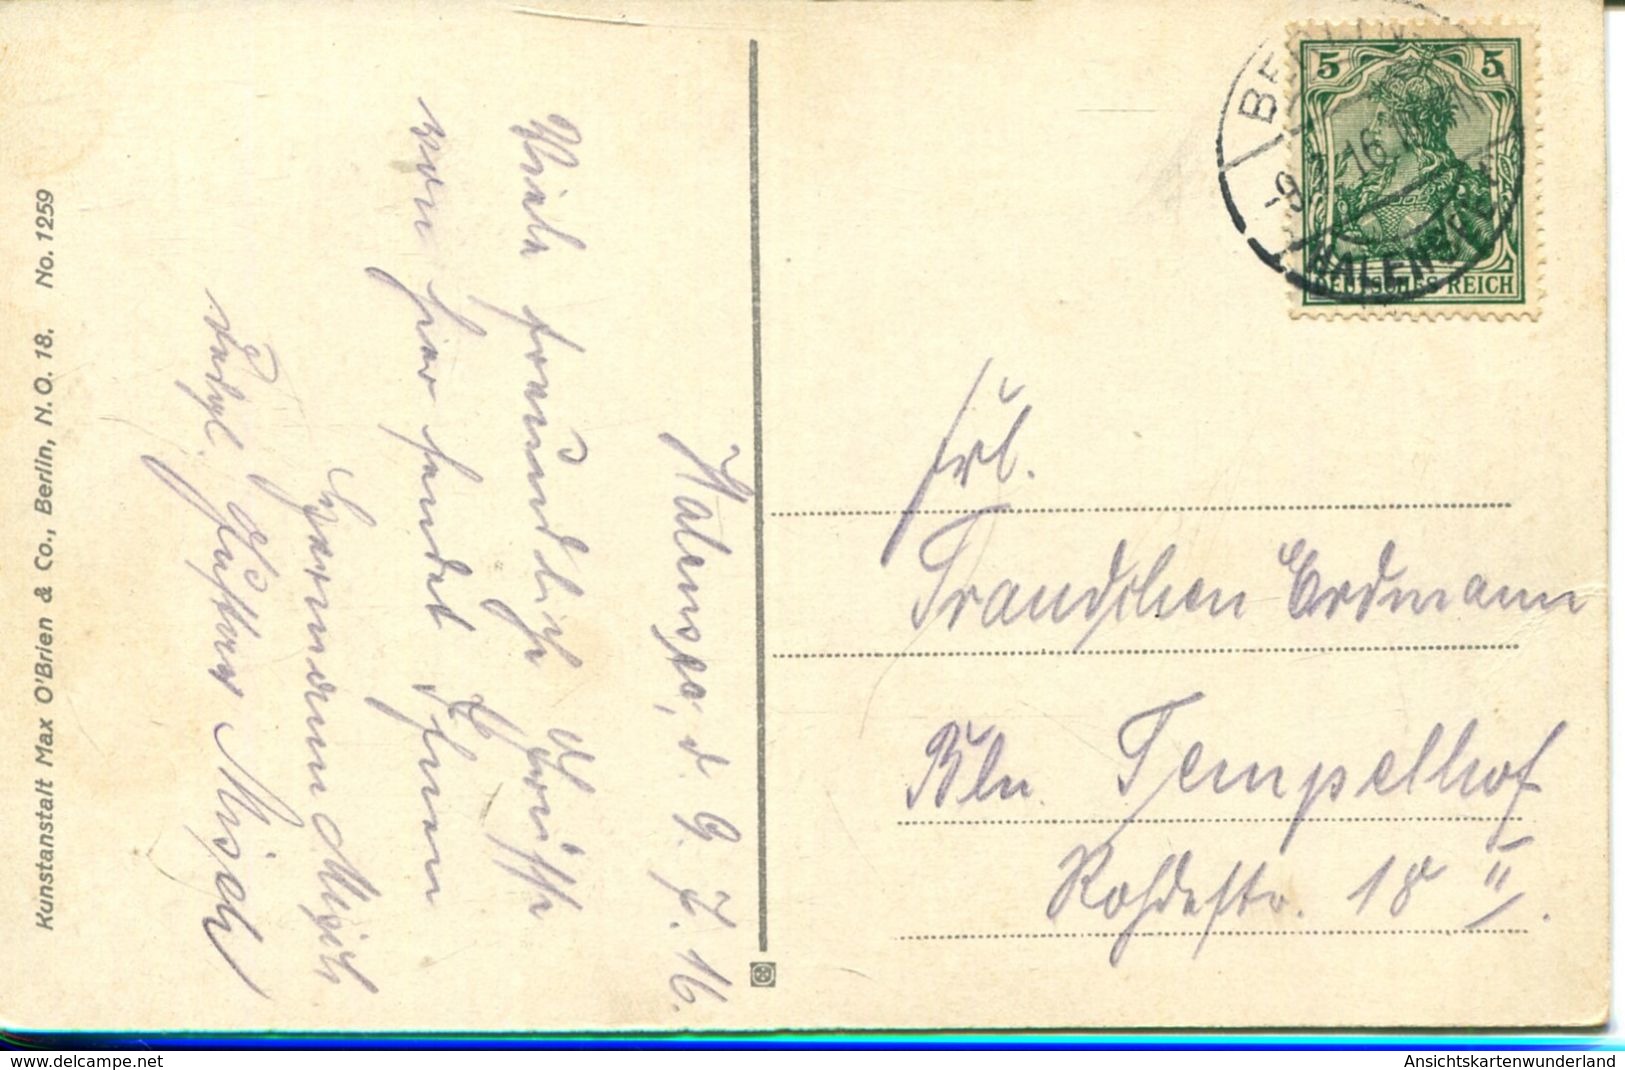 Halensee, d. 9. 7. 16.
Viele freundliche Grüsse
von hier sendet Ihnen
Hermann Misch
desgl. Gustav Misch
Kunstanstalt Max O'Brien & Co., Berlin, N.O. 18. No. 1259
BERLIN
-9. 7. 16
HALENSEE
5 5
DEUTSCHES REICH
Frl.
Erdmann
Bln. Tempelhof
Rohdestr. 18 II.
delcampe.net
Ansichtskartenwunderland